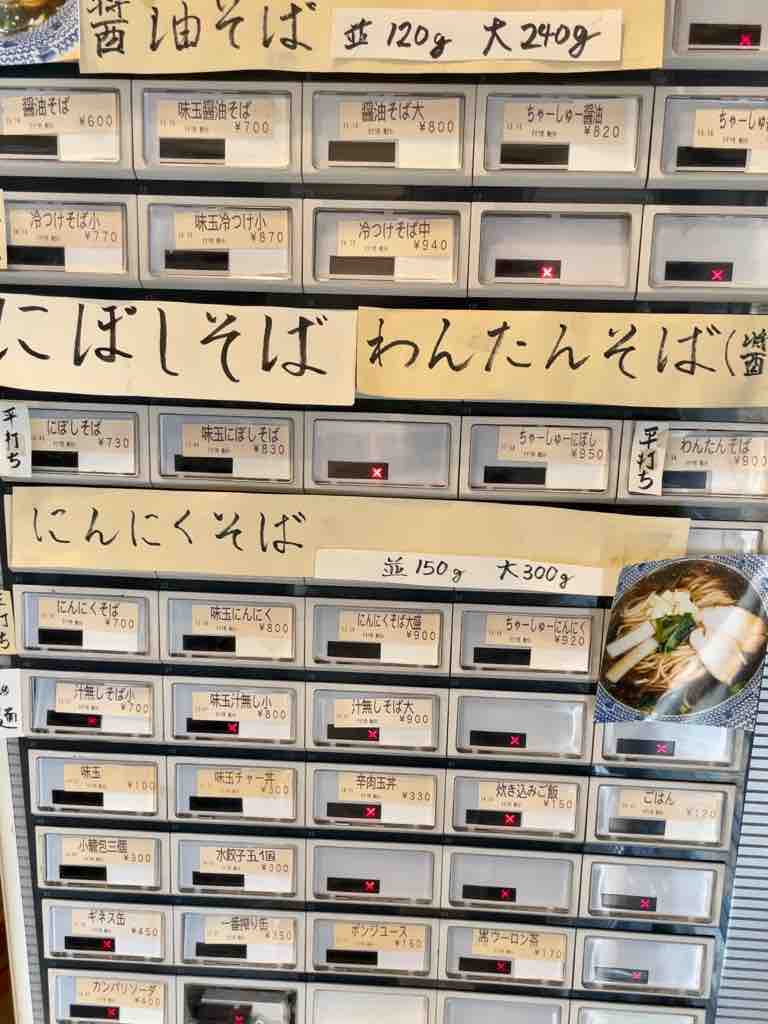 醤油そば 並120g 大240g
醤油そば ¥600
味玉醤油そば ¥700
醤油そば大 ¥800
ちゃーしゅー醤油 ¥820
ちゃーしゅ
冷つけそば小 ¥770
味玉冷つけ小 ¥870
冷つけそば中 ¥940
にぼしそば
わんたんそば(醤
平打ち
にぼしそば ¥730
味玉にぼしそば ¥830
ちゃーしゅーにぼし ¥950
平打ち
わんたんそば ¥900
にんにくそば
並150g 大300g
平打ち
にんにくそば ¥700
味玉にんにく ¥800
にんにくそば大盛 ¥900
ちゃーしゅーにんにく ¥920
麺
汁無しそば小 ¥700
味玉汁無し小 ¥800
汁無しそば大 ¥900
味玉 ¥100
味玉チャー丼 ¥300
辛肉玉丼 ¥330
炊き込みご飯 ¥150
ごはん ¥120
小籠包三個 ¥300
水餃子五個 ¥300
ギネス缶 ¥450
一番搾り缶 ¥350
ポンジュース ¥160
黒ウーロン茶 ¥170
カンパリソーダ ¥400